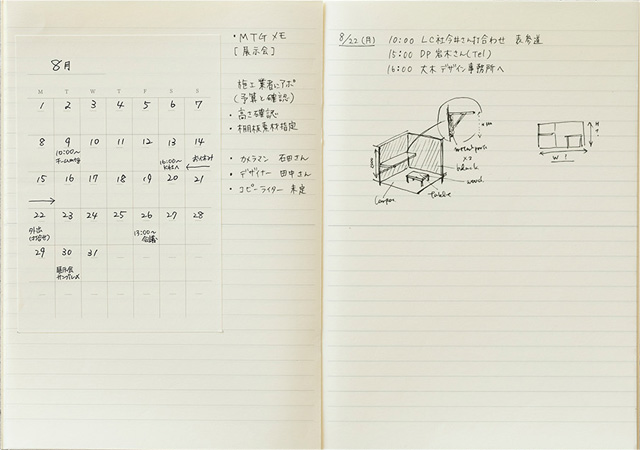 8月
M T W T F S S
1 2 3 4 5 6 7
8 9 10 11 12 13 14
10:00〜
16:00〜
15 16 17 18 19 20 21
22 23 24 25 26 27 28
外出
(打合せ)
13:00〜
会議
29 30 31
展示会
サンプル〆
・MTGメモ
[展示会]
施工業者にアポ
(予算と確認)
・高さ確認
・棚板素材指定
・カメラマン 石田さん
・デザイナー 田中さん
・コピーライター 未定
8/22(月) 10:00 LC社今井さん打合わせ 表参道
15:00 DP 岩木さん(Tel)
16:00 大木デザイン事務所へ
x2
black
wood
table
W ?
H ?